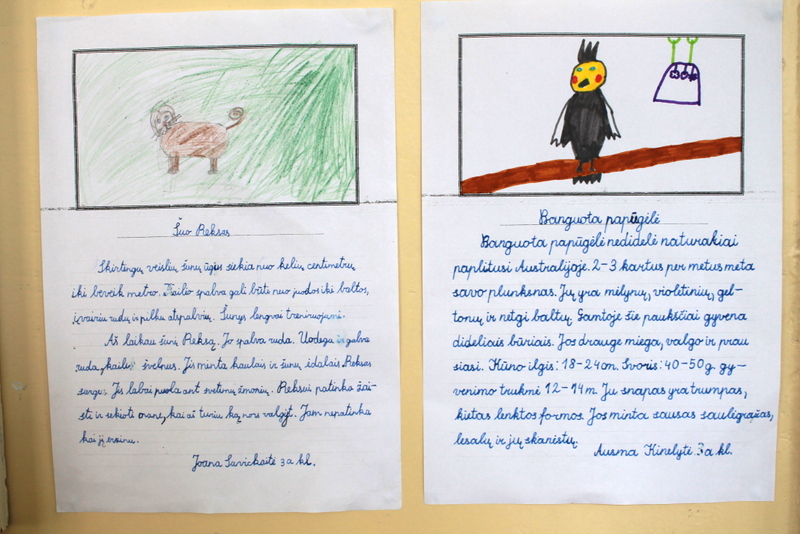 Šuo Reksas
Skirtingų veislių šunų ūgis siekia nuo kelių centimetrų
iki beveik metro. Kailio spalva gali būti nuo juodos iki baltos,
įvairių rudų ir pilkų atspalvių. Šunys lengvai treniruojami.
Aš laikau šunį Reksą. Jo spalva ruda. Uodega ir galva
ruda, kailis švelnus. Jis minta kaulais ir šunų ėdalais. Reksas
sargus. Jis labai puola ant svetimų žmonių. Reksui patinka žai-
sti ir sekioti mane, kai aš turiu ką nors valgyt. Jam nepatinka
kai jį erzinu.
Joana Savickaitė 3a kl.
Banguota papūgėlė
Banguota papūgėlė nedidelė naturakiai
paplitusi Australijoje. 2-3 kartus per metus meta
savo plunksnas. Jų yra mėlynų, violetinių, gel-
tonų ir netgi baltų. Gamtoje šie paukščiai gyvena
dideliais būriais. Jos drauge miega, valgo ir prau
siasi. Kūno ilgis: 18-24cm. Svoris: 40-50g. gy-
venimo trukmė 12-14m. Jų snapas yra trumpas,
kietas lenktos formos. Jos minta sausas saulėgrąžas,
lesalų ir jų skanėstų.
Ausma Kinelytė 3a kl.